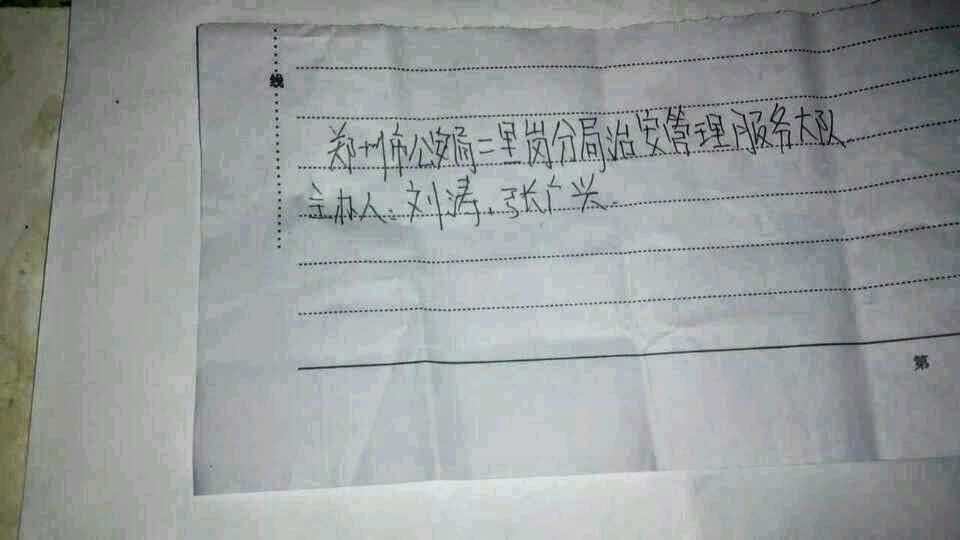 线
郑州市公安局二里岗分局治安管理服务大队
主办人:刘涛.张广兴.
第